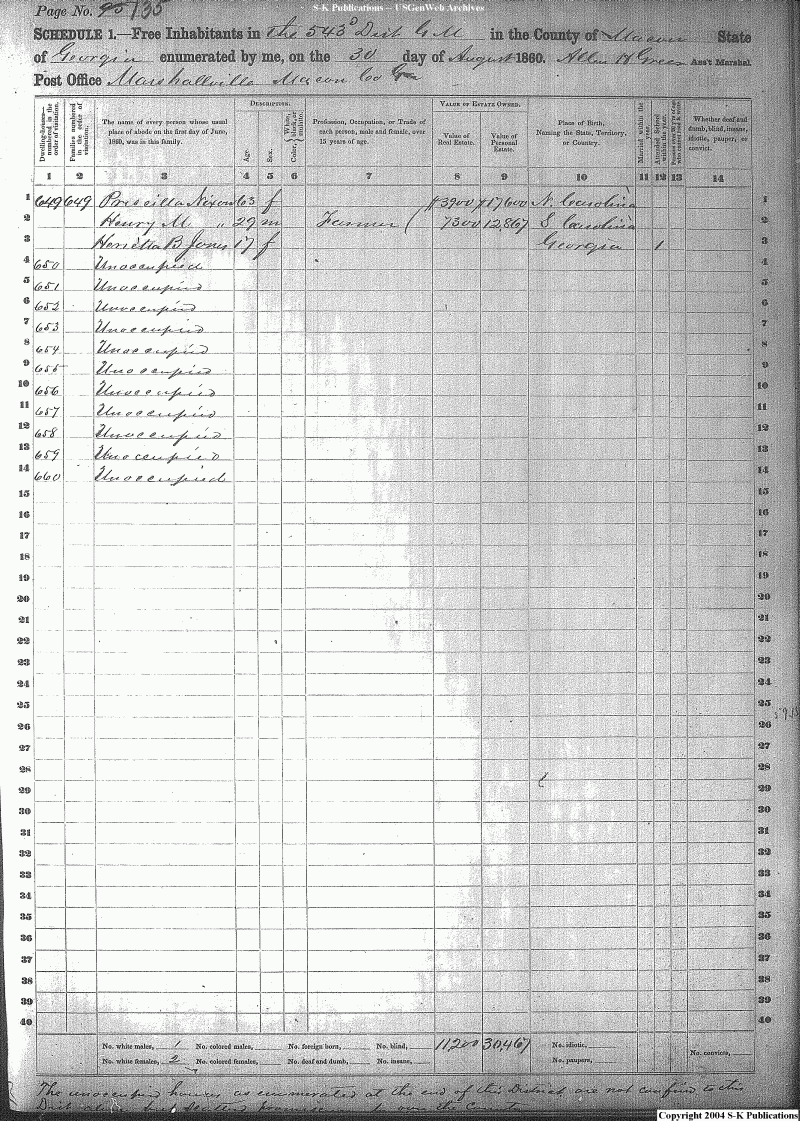 S-K Publications -- USGenWeb Archives
Page No. 95 135
SCHEDULE 1.—Free Inhabitants in the 543d Dist G M in the County of Macon State
of Georgia enumerated by me, on the 30 day of August 1860. Allen H Green Ass't Marshal.
Post Office Marshallville Macon Co Geo
DESCRIPTION. VALUE OF ESTATE OWNED.
Dwelling-houses—numbered in the order of visitation.
Families numbered in the order of visitation.
The name of every person whose usual place of abode on the first day of June, 1860, was in this family.
Age.
Sex.
Color, White, black, or mulatto.
Profession, Occupation, or Trade of each person, male and female, over 15 years of age.
Value of Real Estate.
Value of Personal Estate.
Place of Birth, Naming the State, Territory, or Country.
Married within the year.
Attended School within the year.
Whether deaf and dumb, blind, insane, idiotic, pauper, or convict.
1 2 3 4 5 6 7 8 9 10 11 12 13 14
1 649 649 Priscilla Nixon 63 f $3900 $17600 N. Carolina 1
2 Henry M " 29 m Farmer 7300 12,867 S Carolina 2
3 Henrietta B Jones 17 f Georgia 1 3
4 650 Unoccupied 4
5 651 Unoccupied 5
6 652 Unoccupied 6
7 653 Unoccupied 7
8 654 Unoccupied 8
9 655 Unoccupied 9
10 656 Unoccupied 10
11 657 Unoccupied 11
12 658 Unoccupied 12
13 659 Unoccupied 13
14 660 Unoccupied 14
15 15
16 16
17 17
18 18
19 19
20 20
21 21
22 22
23 23
24 24
25 25
26 26
27 27
28 28
29 29
30 30
31 31
32 32
33 33
34 34
35 35
36 36
37 37
38 38
39 39
40 40
No. white males, 1 No. colored males, No. foreign born, No. blind, 11200 30,467 No. idiotic,
No. white females, 2 No. colored females, No. deaf and dumb, No. insane, No. paupers, No. convicts,
The unoccupied houses as enumerated at the end of this District are not confined to this
Copyright 2004 S-K Publications